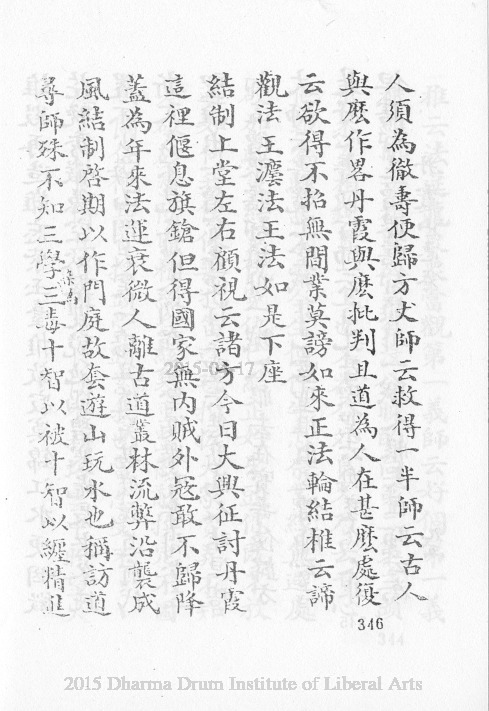 人須為徹壽便歸方丈師云救得一半師云古人
與麽作畧丹霞與麽批判且道為人在甚麽處復
云欲得不招無間業莫謗如來正法輪結椎云諦
觀法王灋法王法如是下座
結制上堂左右顧視云諸方今日大興征討丹霞
這裡偃息旗鎗但得國家無内賊外冦敢不歸降
蓋為年來法運衰微人離古道叢林流弊沿襲成
風結制啓期以作門庭故套遊山玩水也稱訪道
尋師殊不知三學三毒十智以被十智以纏精進
346
2015-04-17
2015 Dharma Drum Institute of Liberal Arts